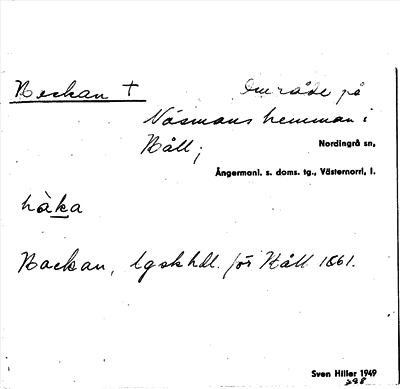 Backan +
Område på
Näsmans hemman i
Båll;
Nordingrå sn,
Ångermanl. s. doms. tg., Västernorrl. l.
bàka
Backan, lgskhdl. för Håll 1861.
Sven Hiller 1949
298